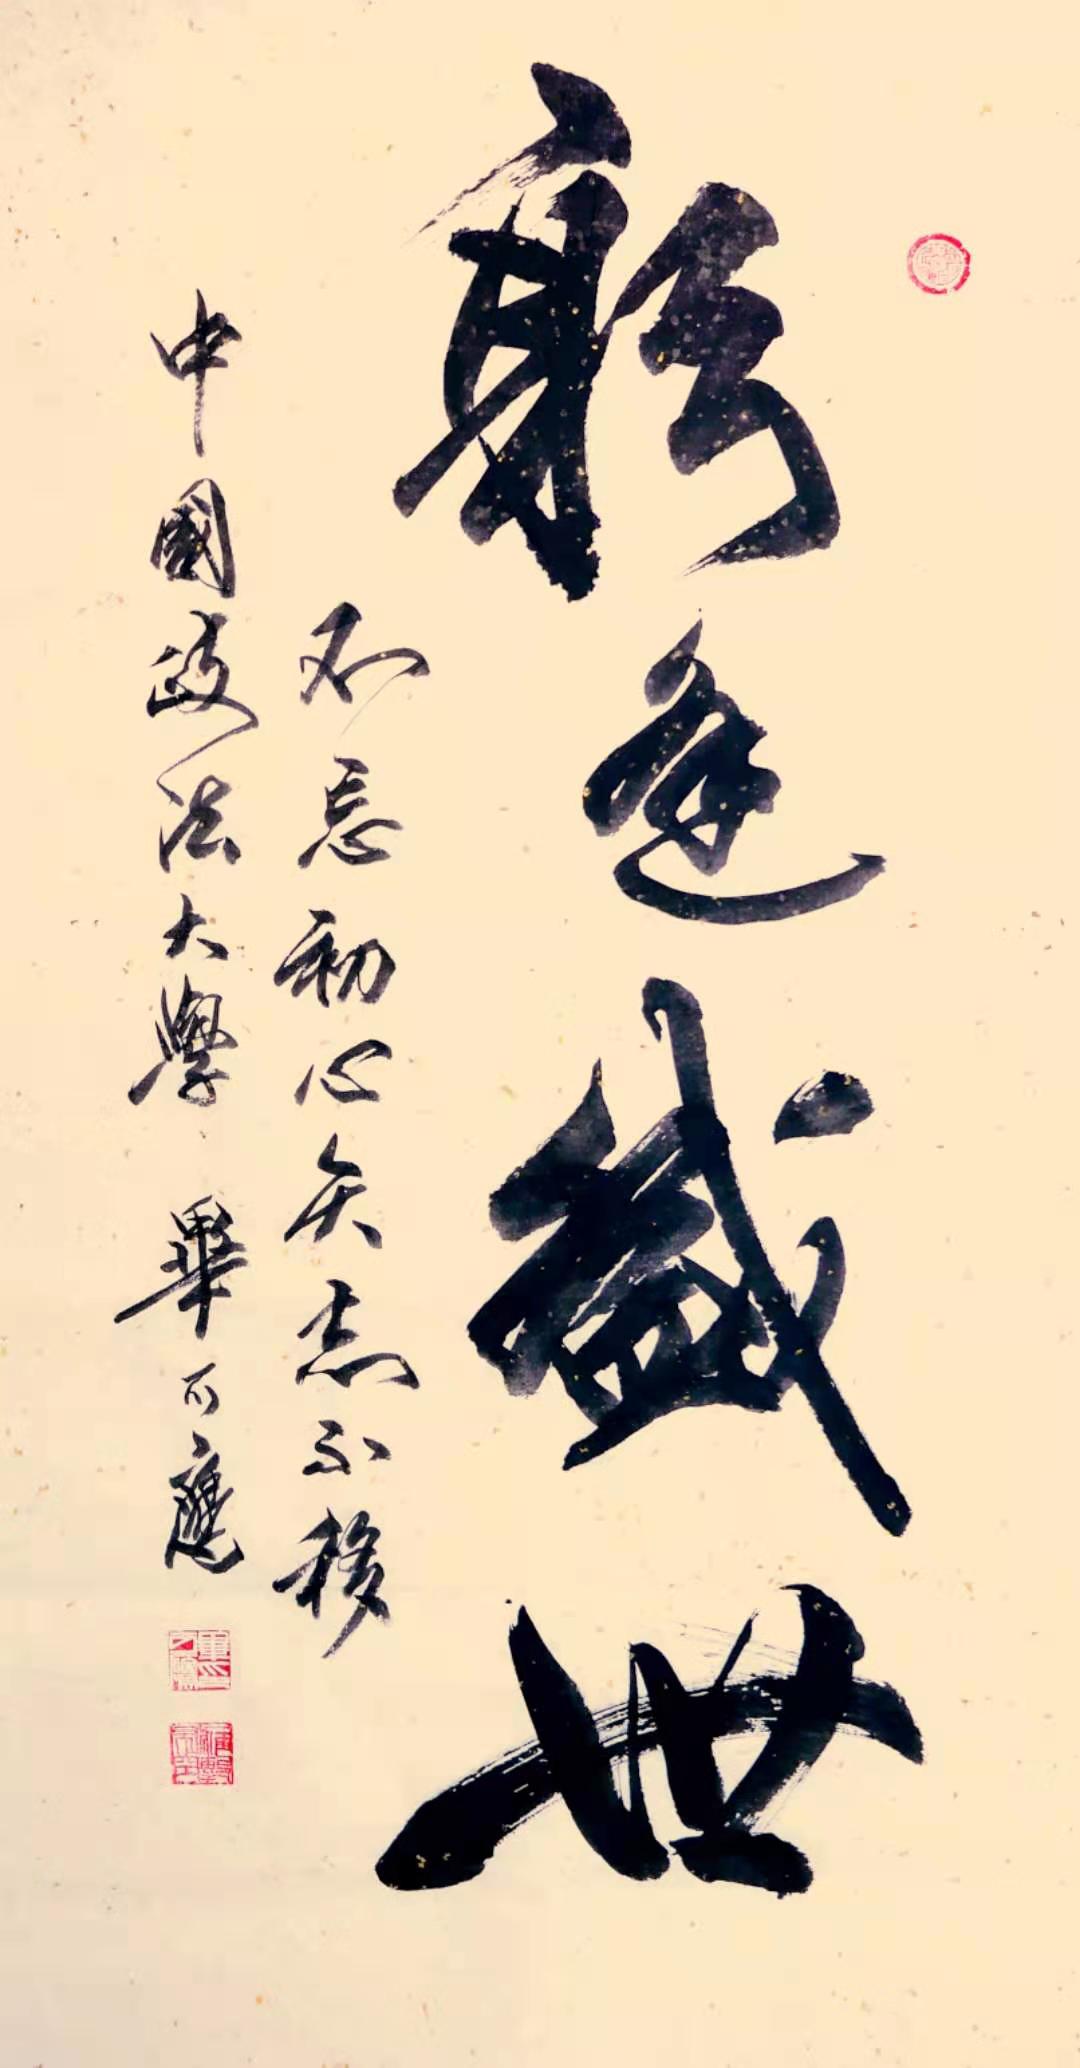 躬逢盛世
不忘初心矢志不移
中國政法大學 畢可